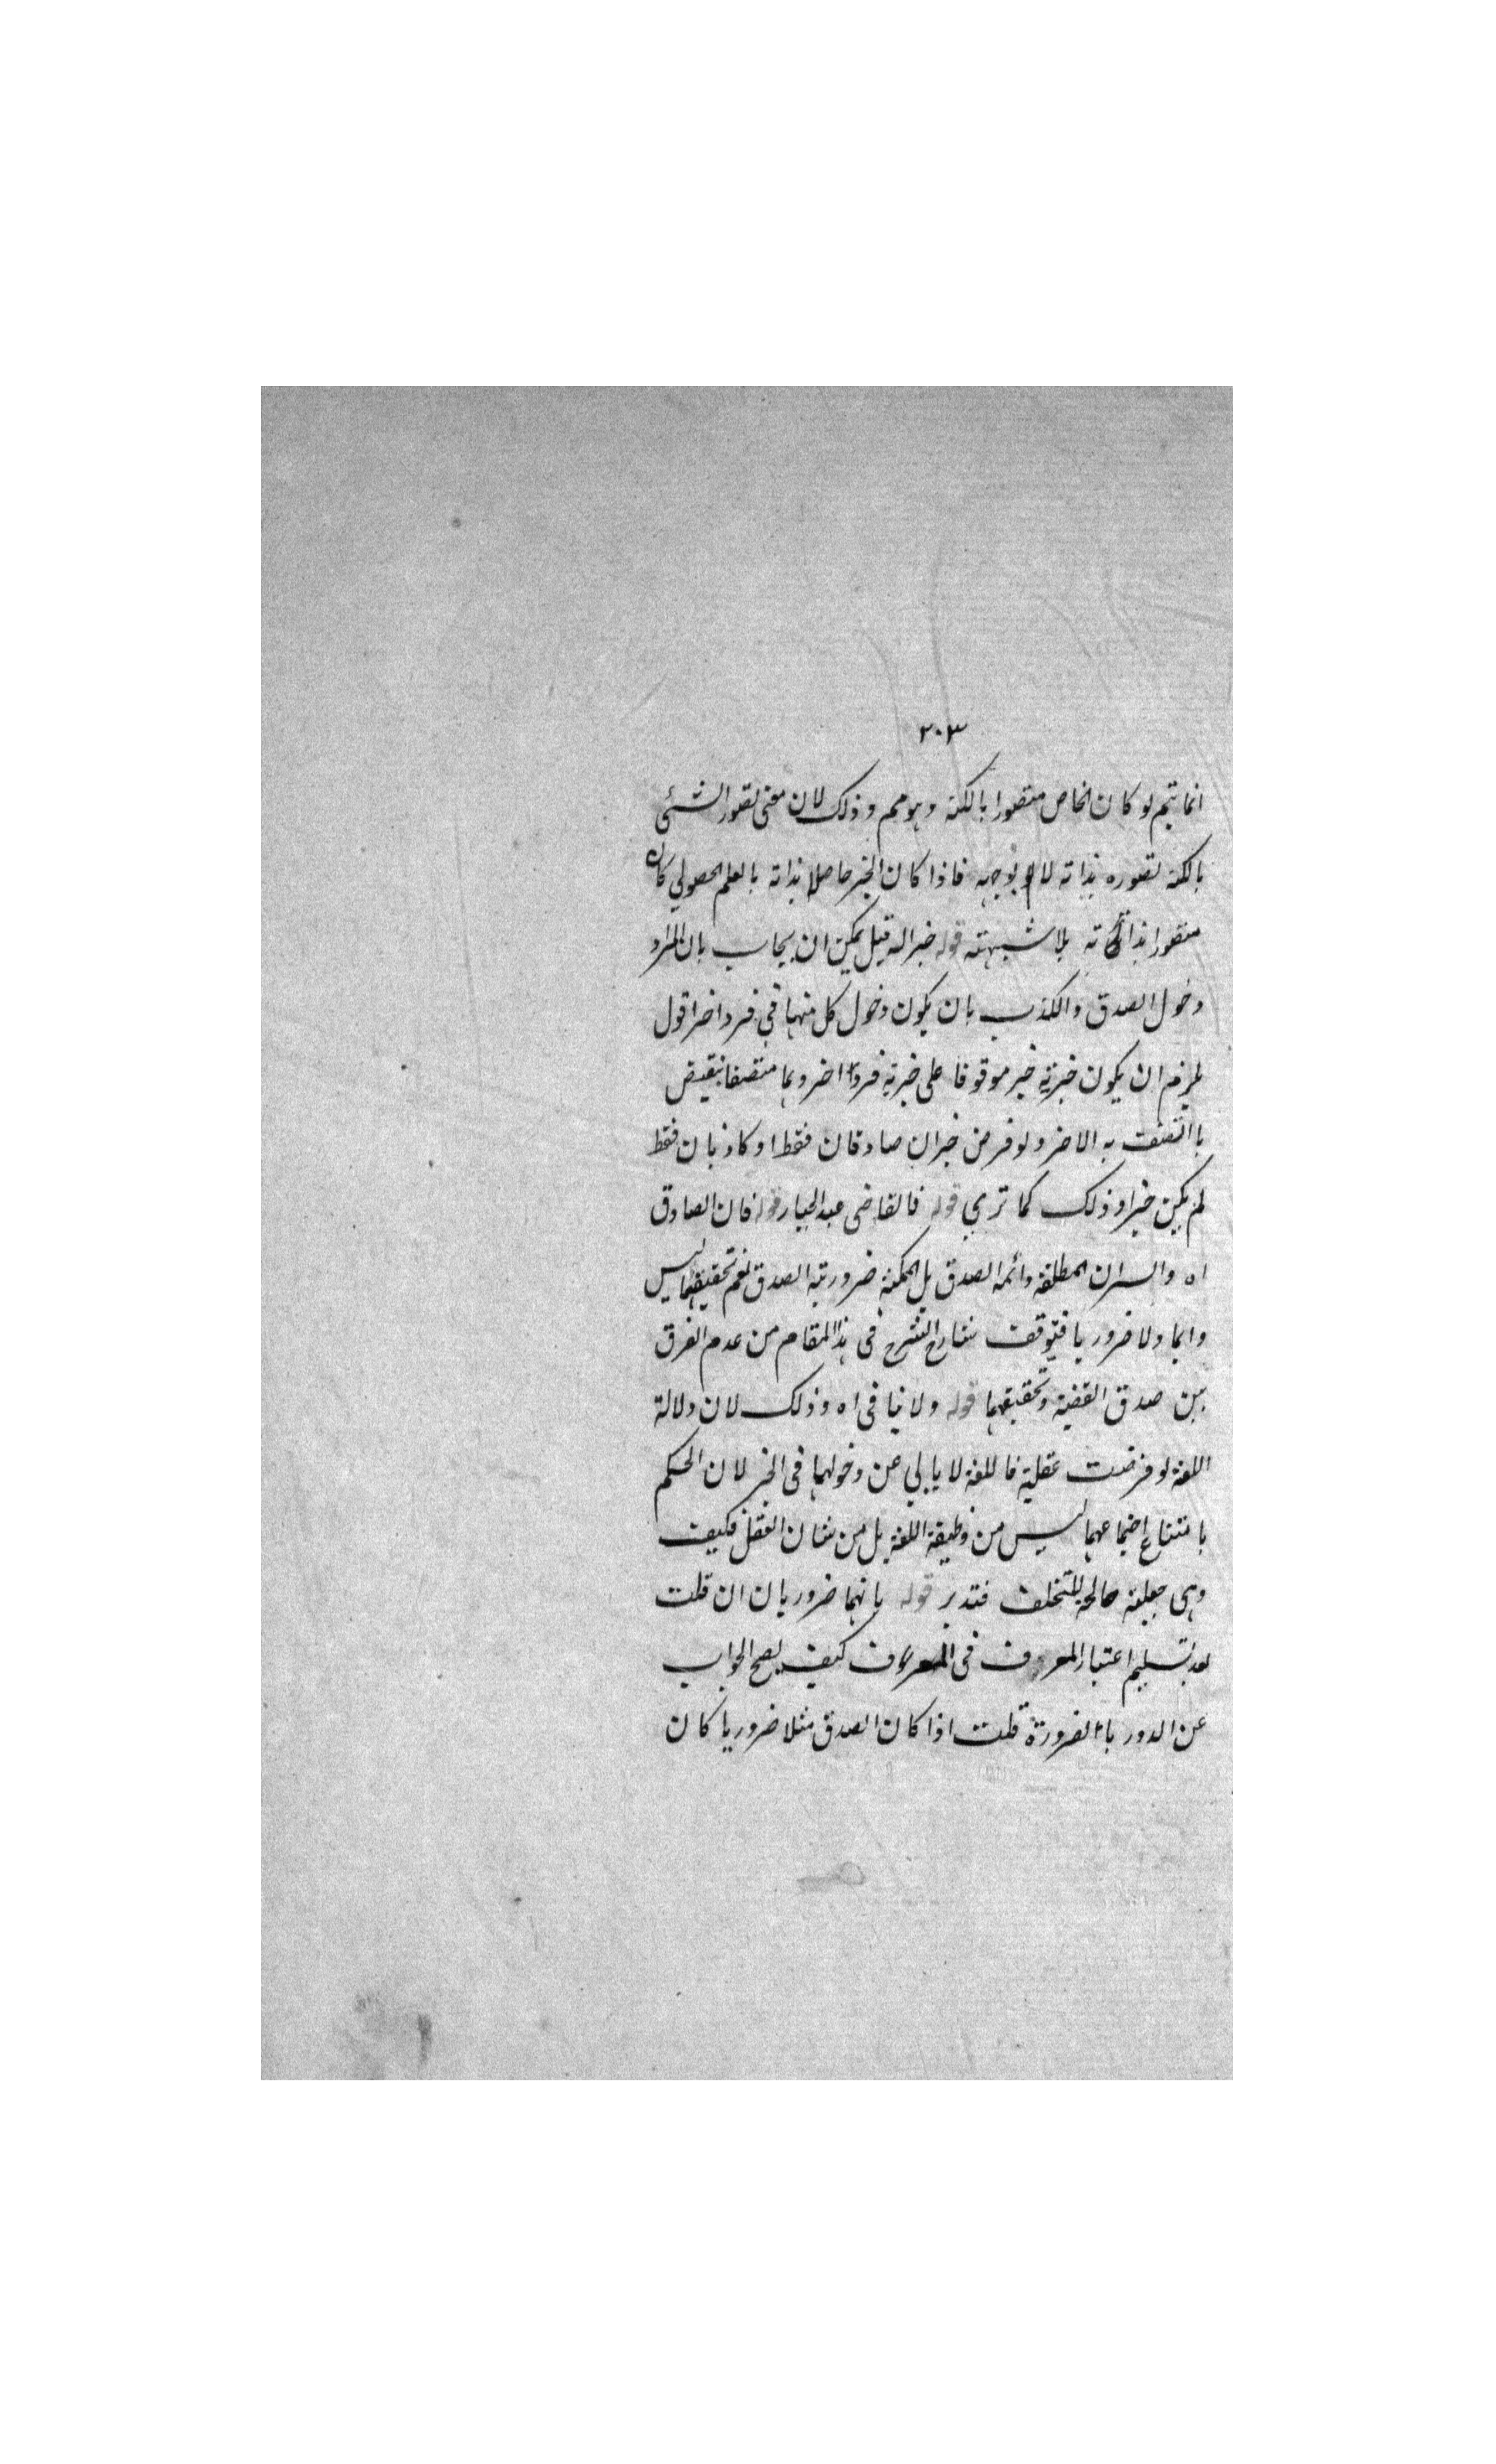 ٣٠٣
انما يتم لو كان الخاص متصورا بالكنه وهو مم وذلك لان معنى تصور الشئى
بالكنه تصوره بذاته لا بوجهه فاذا كان الخبر حاصلا بذاته بالعلم الحصولي كان
متصورا بذاته بلا شبهته قوله خبر اله قيل يمكن ان يجاب بان المراد
دخول الصدق والكذب بان يكون دخول كل منهما في فرد اخر اقول
يلزم ان يكون خبرية خبر موقوفا على خبرية فردا اخر وبما متصفا بنقيض
ما اتصفت به الاخر ولو فرض خبران صادقان فقط او كاذبان فقط
لم يكن خبرا وذلك كما ترى قوله فالقاضى عبد الجبار قوله فان الصادق
اه والسر ان المطلقة دائمة الصدق بل الممكنة ضرورية الصدق نعم تحقيقهما ليس
دايما ولا ضروريا فتوقف شارح الشرح فى هذا المقام من عدم الفرق
بين صدق القضية وتحقيقهما قوله ولا ينافى اه وذلك لان دلالة
اللغة لو فرضت عقلية فاللغة لا يابى عن دخولهما فى الخبر لان الحكم
بامتناع اجتماعهما ليس من وظيفة اللغة بل من شان العقل فكيف
وهى جعلية صالحة للتخلف فتدبر قوله بانهما ضروريان ان قلت
بعد تسليم اعتبار المعروف فى المعروف كيف يصح الجواب
عن الدور بالضرورة قلت اذا كان الصدق مثلا ضروريا كان